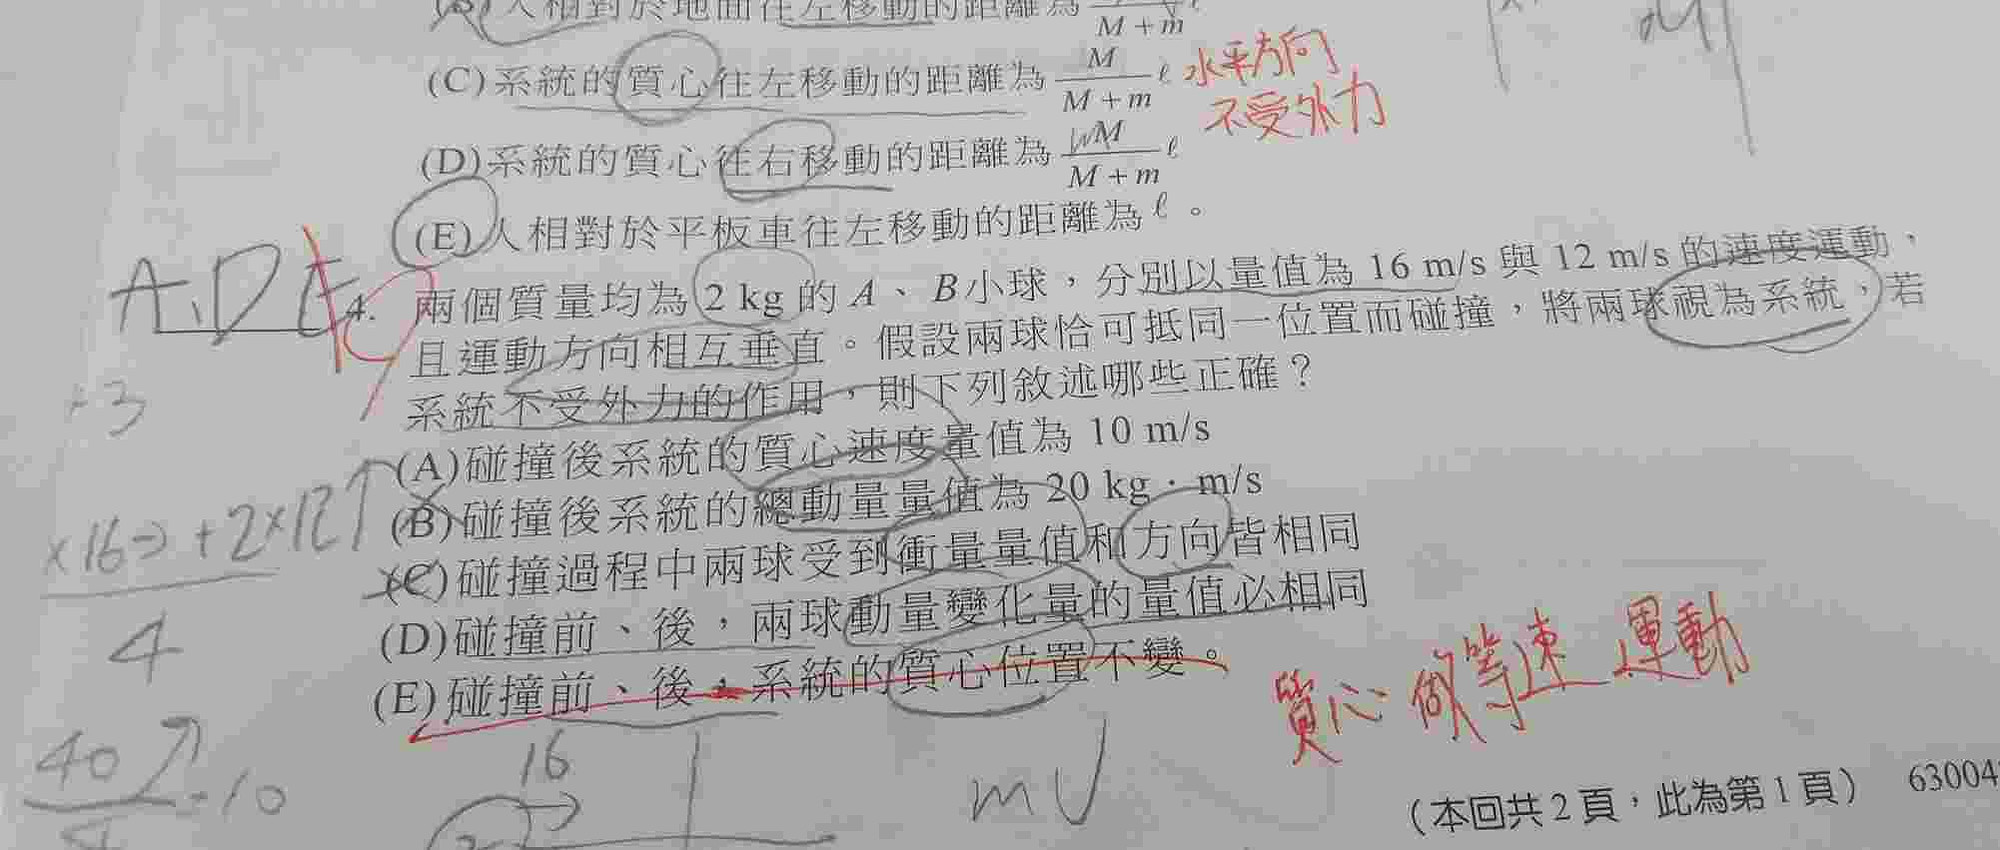 人相對於地面往左移動的距離為 M + m ℓ
(C)系統的質心往左移動的距離為 M / M + m ℓ 水平方向
不受外力
(D)系統的質心往右移動的距離為 M / M + m ℓ
(E)人相對於平板車往左移動的距離為 ℓ。
A、D E
4. 兩個質量均為 2 kg 的 A、B小球，分別以量值為 16 m/s 與 12 m/s 的速度運動，
且運動方向相互垂直。假設兩球恰可抵同一位置而碰撞，將兩球視為系統，若
系統不受外力的作用，則下列敘述哪些正確？
-3
(A)碰撞後系統的質心速度量值為 10 m/s
(B)碰撞後系統的總動量量值為 20 kg · m/s
×16→+2×12↑
4
(C)碰撞過程中兩球受到衝量量值和方向皆相同
(D)碰撞前、後，兩球動量變化量的量值必相同
(E)碰撞前、後，系統的質心位置不變。
質心做等速運動
40↗ / 4 = 10
16
mv
（本回共2頁，此為第1頁） 63004